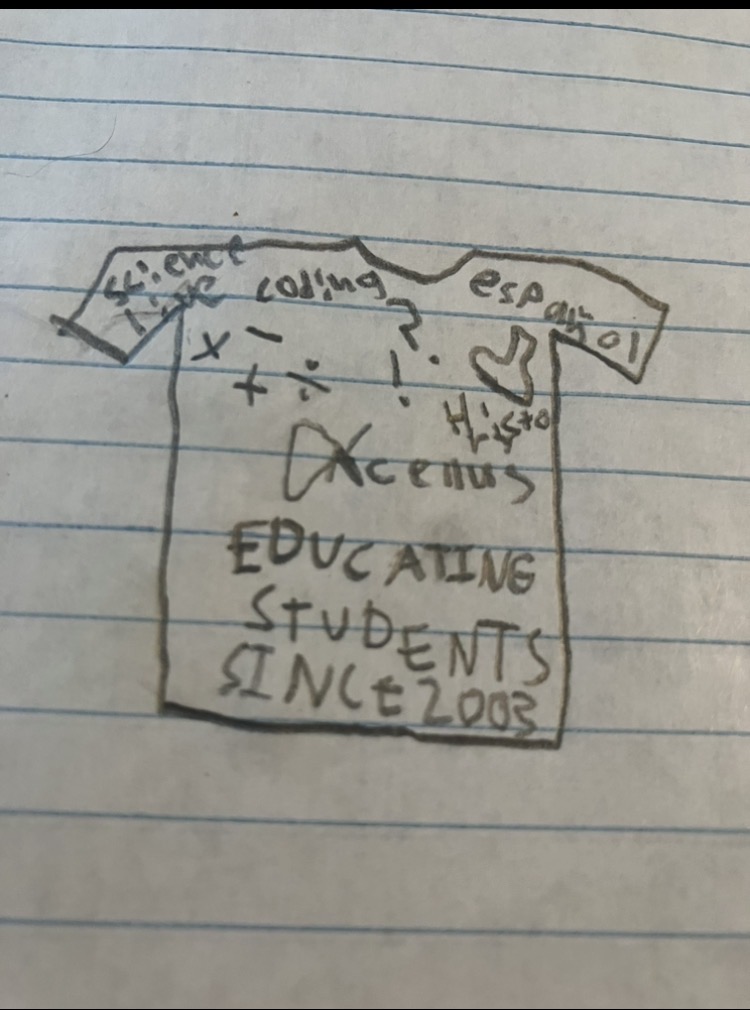 science
coding
español
x - ? .
+ ÷ !
Histo
ry
Xcellus
EDUCATING
STUDENTS
SINCE 2003